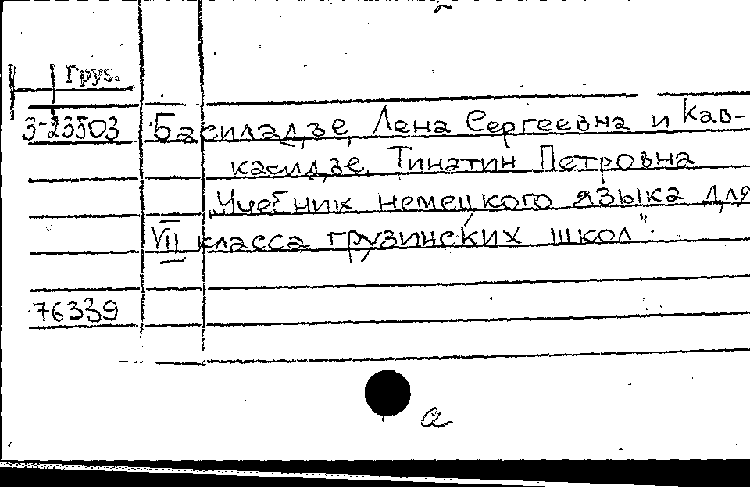 Груз.
3-23503 Басиладзе, Лена Сергеевна и Кав-
касидзе, Тинатин Петровна
„Учебник немецкого языка для
VII класса грузинских школ"
76339
а